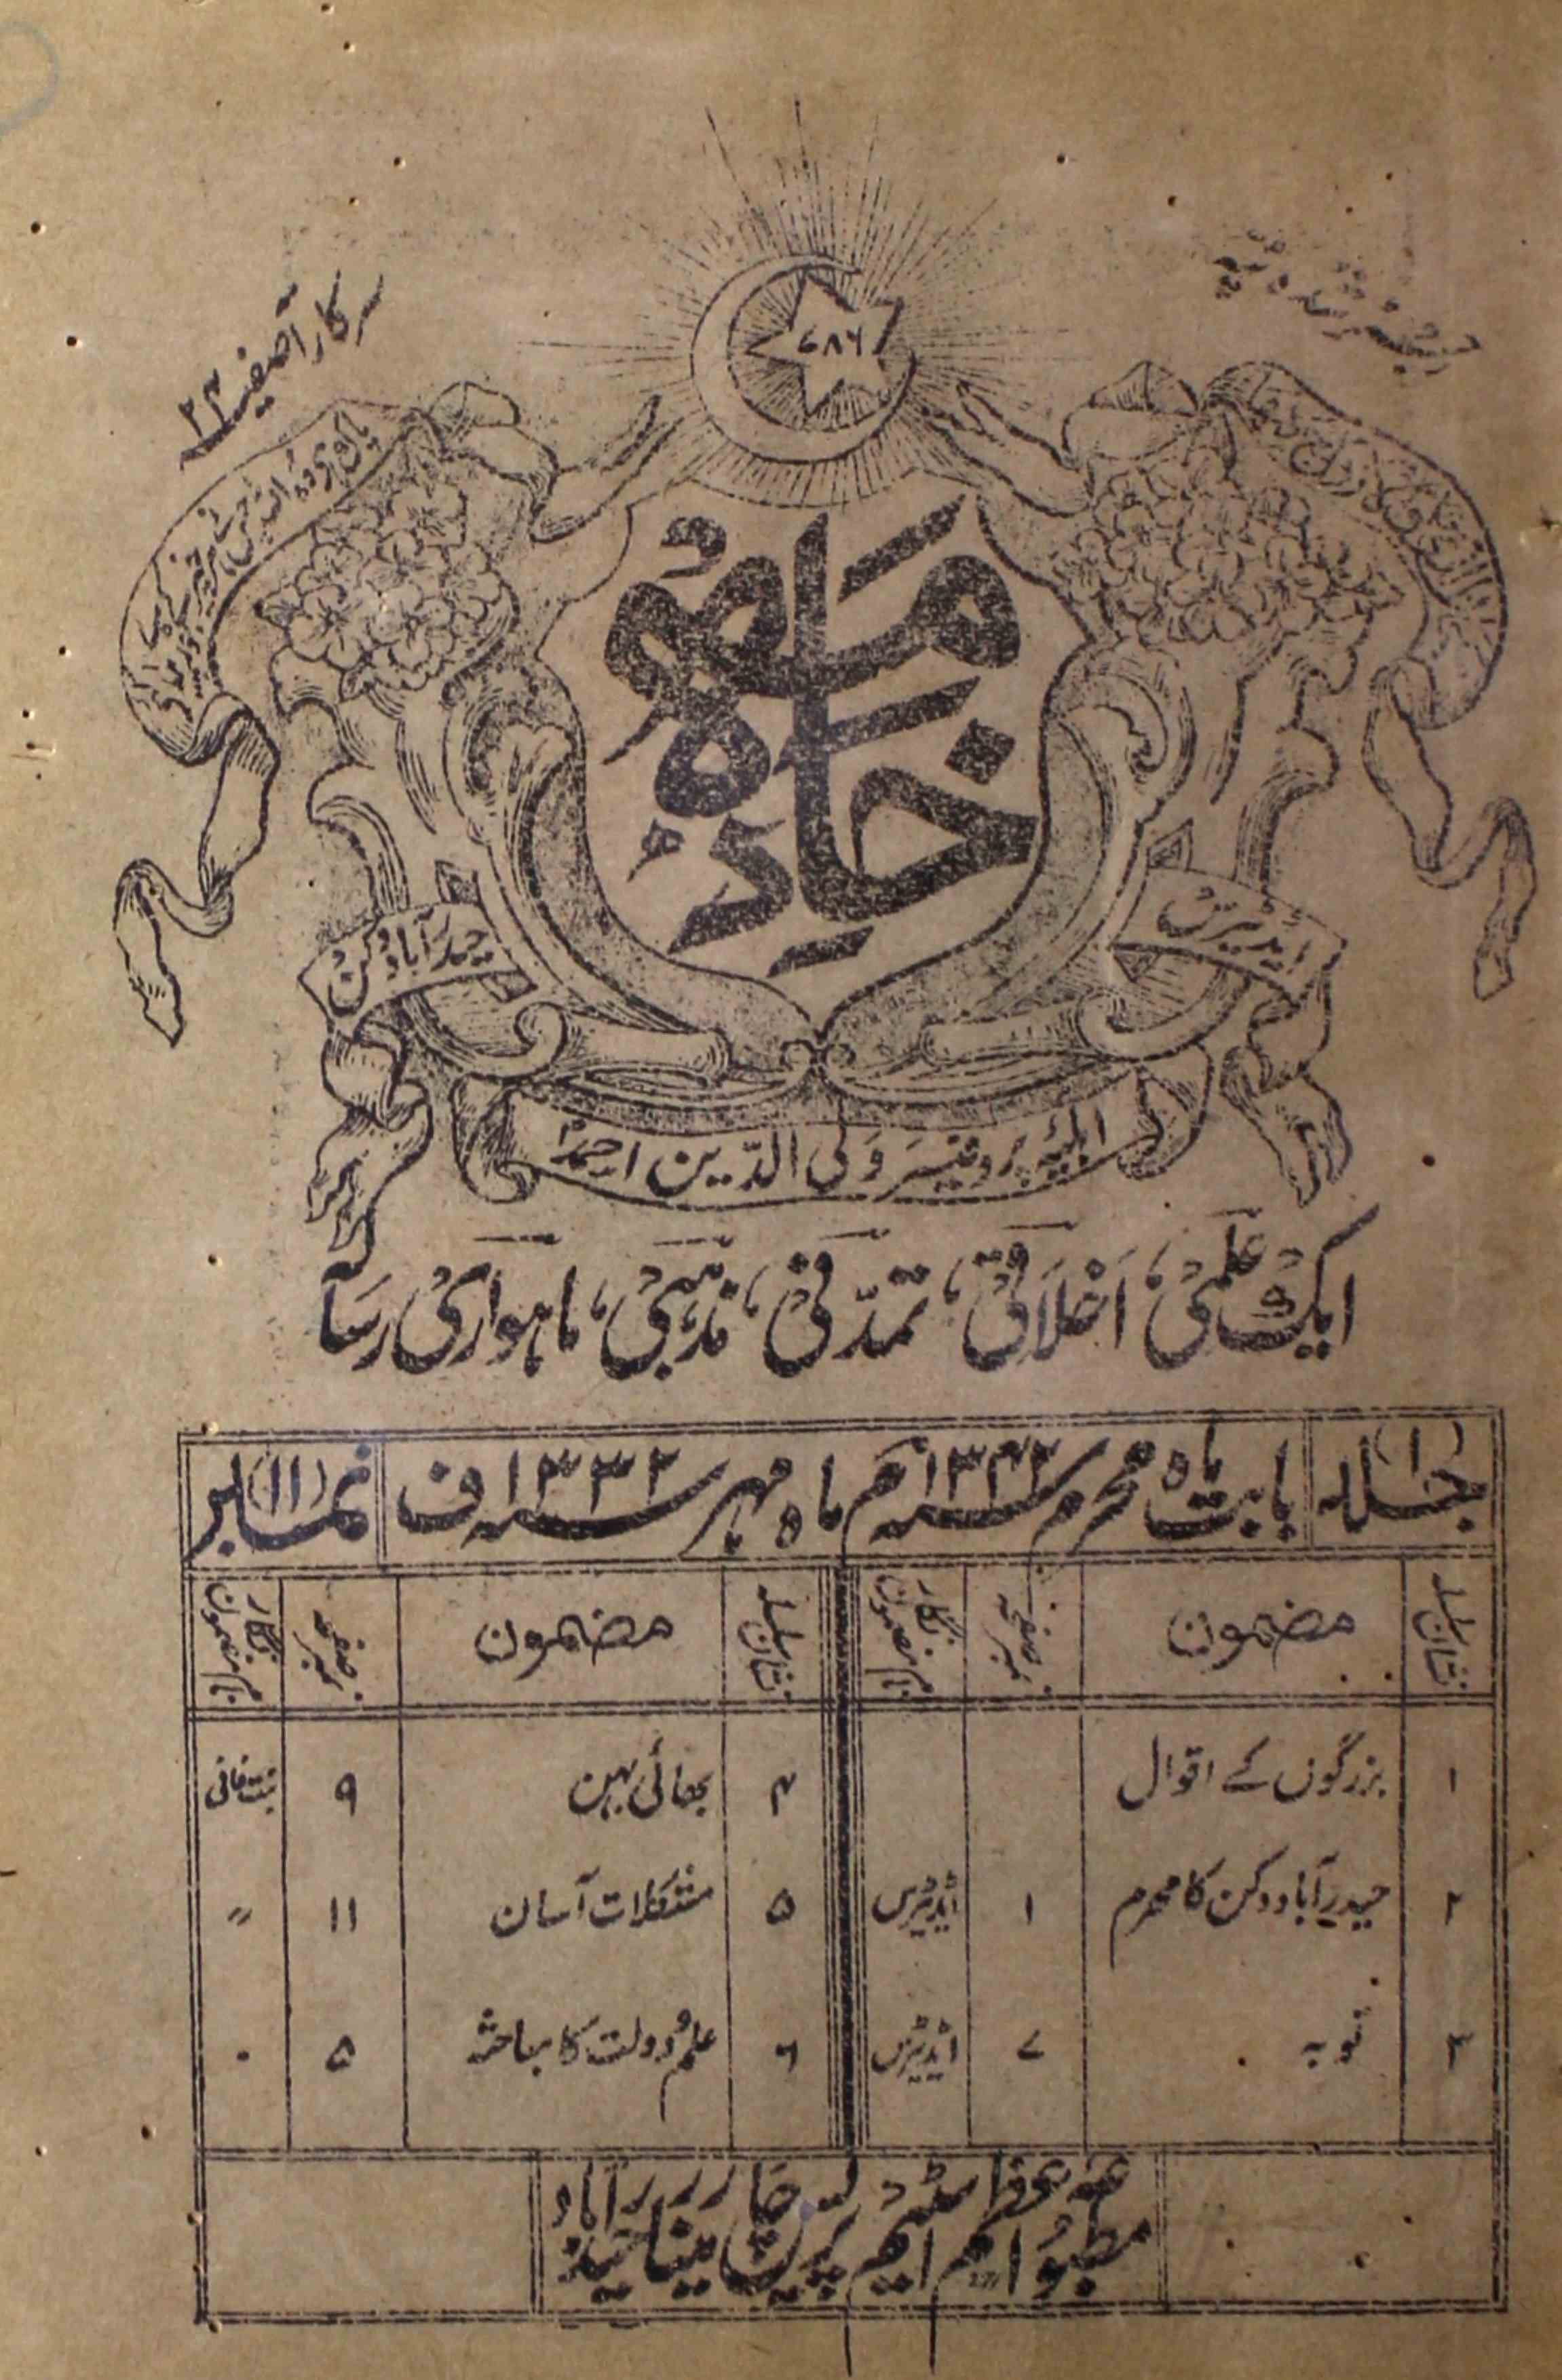 رجسٹرڈ شدہ نمبر
سرکار آصفیہ ۲۳
۷۸۶
ماہوار
خادمہ
حیدرآباد دکن
ایڈیٹرس
اہلیہ پروفیسر ولی الدین احمد
ایک علمی، اخلاقی، تمدّنی، مذہبی، ماہواری رسالہ
جلد (۱) بابت ماہ محرم سنہ ۱۳۴۲ھ م ماہ مہر سنہ ۱۳۳۲ف نمبر (۱۱)
نشان سلسلہ مضمون نمبر صفحہ نام مضمون نگار نشان سلسلہ مضمون نمبر صفحہ نام مضمون نگار
۱ بزرگوں کے اقوال ۴ بھائی بہن ۹ بنت فانی
۲ حیدرآباد دکن کا محرم ۱ ایڈیٹرس ۵ مشکلات آسان ۱۱ ״
۳ توبہ ۷ ایڈیٹرس ۶ علم و دولت کا مباحثہ ۵
مطبوعہ اعظم اسٹیم پریس چارمینار حیدرآباد